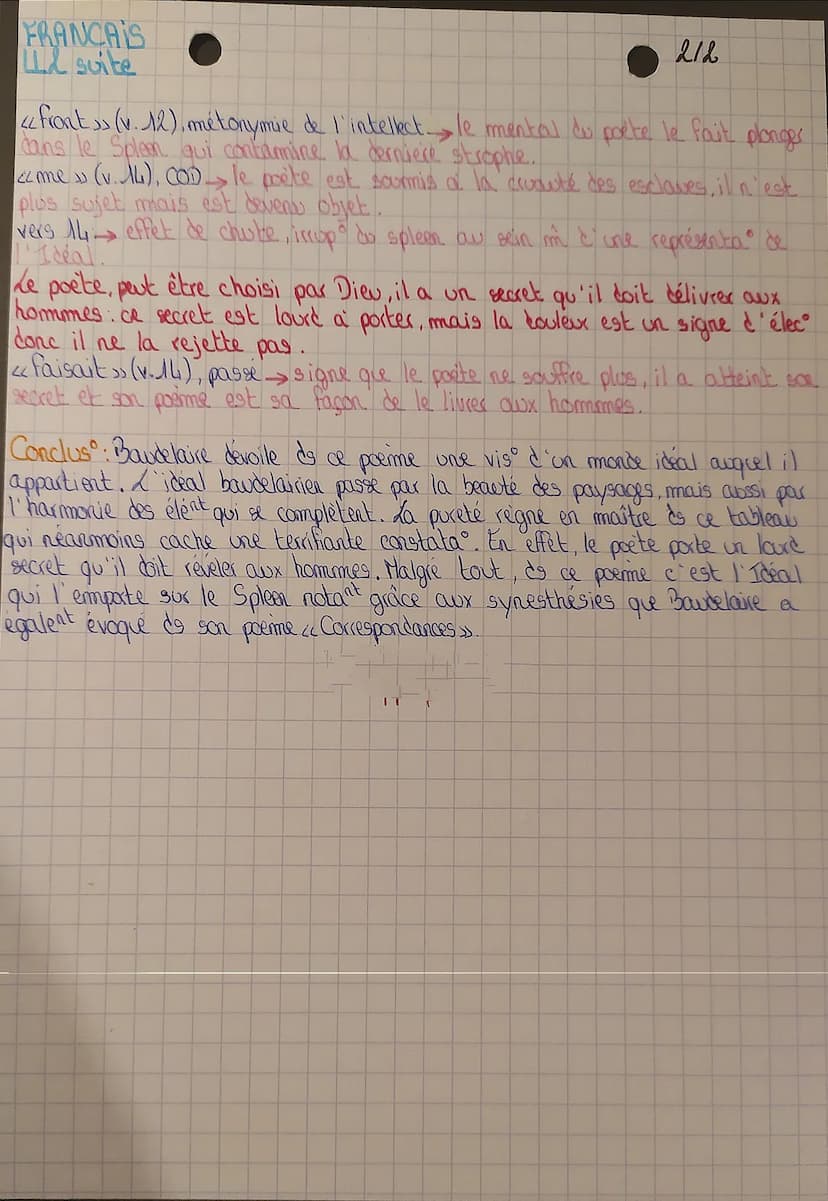 FRANÇAIS
LL2 suite
2/2
«front» (v.12), métonymie de l'intellect → le mental du poète le fait plonger
dans le Spleen qui contamine la dernière strophe.
«me» (v.14), COD → le poète est soumis à la cruauté des esclaves, il n'est
plus sujet mais est devenu objet.
vers 14 → effet de chute, irrup° du spleen au sein m̂ d'une représenta° de
l'Idéal.
Le poète, peut être choisi par Dieu, il a un secret qu'il doit délivrer aux
hommes : ce secret est lourd à porter, mais la douleur est un signe d'élec°
donc il ne la rejette pas.
«faisait» (v.14), passé → signe que le poète ne souffre plus, il a atteint son
secret et son poème est sa façon de le livrer aux hommes.
Conclus° : Baudelaire dévoile ds ce poème une vis° d'un monde idéal auquel il
appartient. L'idéal baudelairien passe par la beauté des paysages, mais aussi par
l'harmonie des élént qui se complètent. La pureté règne en maître ds ce tableau
qui néanmoins cache une terrifiante constata°. En effet, le poète porte un lourd
secret qu'il doit révéler aux hommes. Malgré tout, ds ce poème c'est l'Idéal
qui l'emporte sur le Spleen notant grâce aux synesthésies que Baudelaire a
égalent évoqué ds son poème «Correspondances».